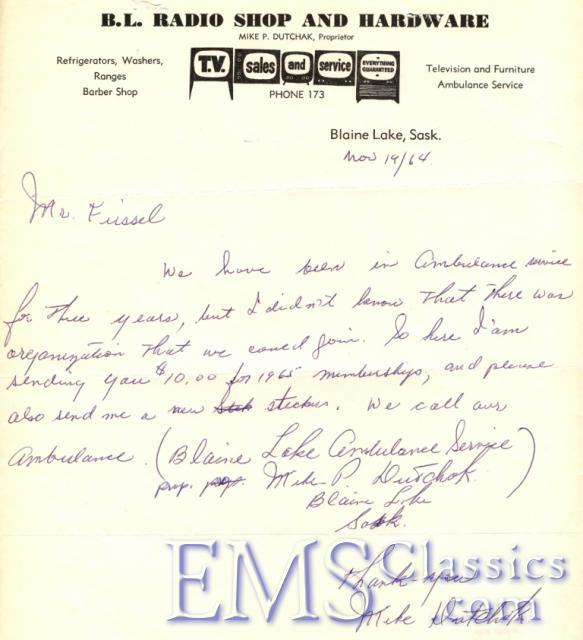 B.L. RADIO SHOP AND HARDWARE
MIKE P. DUTCHAK, Proprietor
Refrigerators, Washers,
Ranges
Barber Shop
T.V. sales and service EVERYTHING GUARANTEED
PHONE 173
Television and Furniture
Ambulance Service
Blaine Lake, Sask.
Nov 19/64
Mr. Fissel
We have been in Ambulance service
for three years, but I didn't know that there was
organization that we could join. So here I am
sending you $10.00 for 1965 membership, and please
also send me a new sticker. We call our
Ambulance. (Blaine Lake Ambulance Service)
prop. Mike P. Dutchak.
Blaine Lake
Sask.
Thank-you
Mike Dutchak
EMSClassics
.com